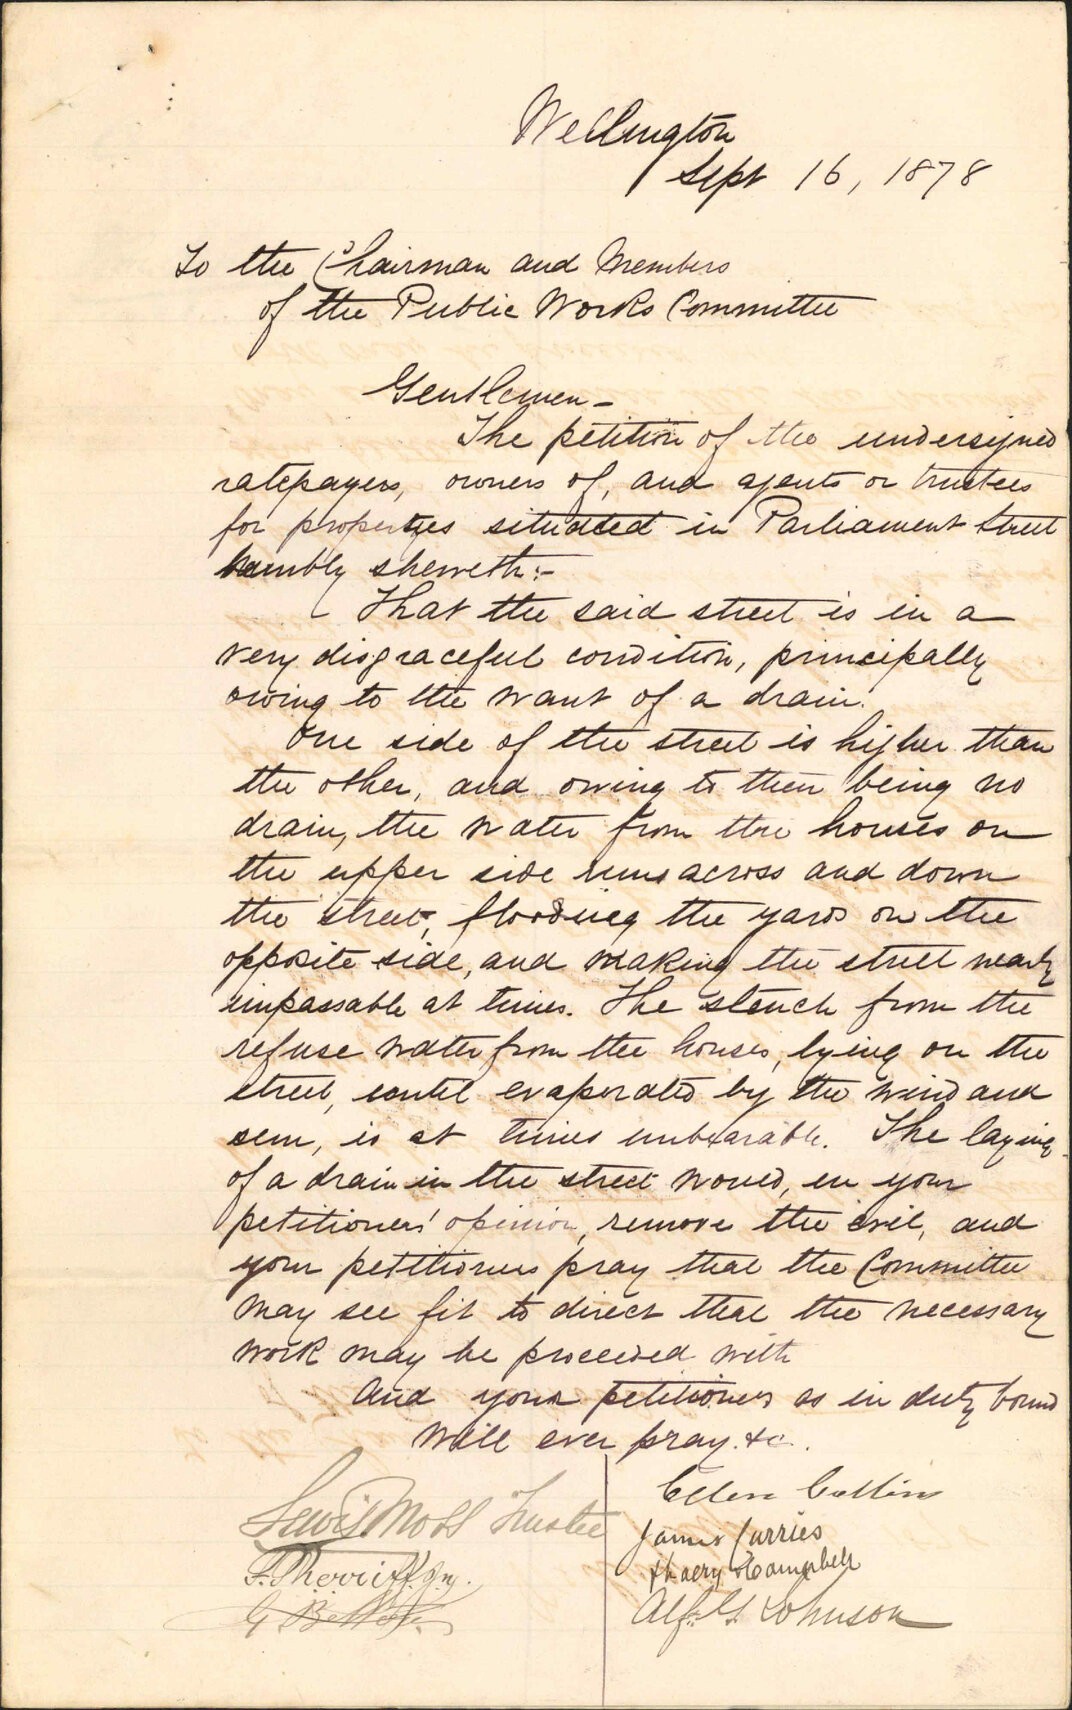 Wellington
Sept 16, 1878
To the Chairman and Members
of the Public Works Committee
Gentlemen -
The petition of the undersigned
ratepayers, owners of, and agents or trustees
for properties situated in Parliament Street
humbly sheweth:-
That the said street is in a
very disgraceful condition, principally
owing to the want of a drain.
One side of the street is higher than
the other, and owing to their being no
drain, the water from the houses on
the upper side runs across and down
the street, flooding the yards on the
opposite side, and making the street nearly
impassable at times. The stench from the
refuse water from the houses, lying on the
street, until evaporated by the wind and
sun, is at times unbearable. The laying
of a drain in the street would, in your
petitioners' opinion, remove the evil, and
your petitioners pray that the Committee
may see fit to direct that the necessary
work may be proceeded with
And your petitioners as in duty bound
will ever pray &c.
Lewis Moss Trustee
F. Sherriff Jn.
Ellen Collins
James Curries
Harry Campbell
Alf. G. Johnson